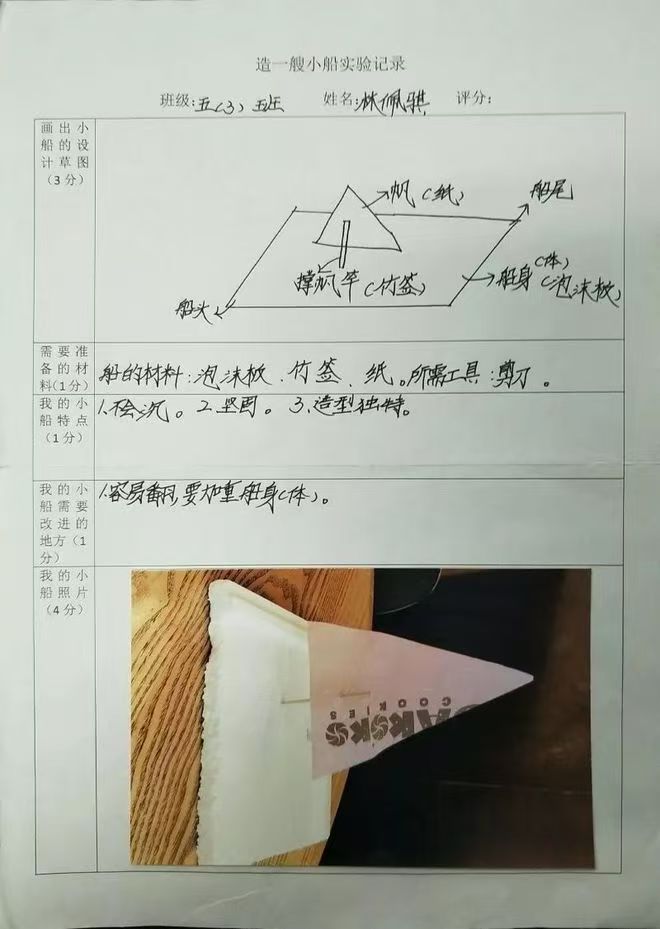 造一艘小船实验记录
班级:五(3)班 姓名:林佩骐 评分:
画出小
船的设
计草图
(3分)
帆(纸)
船尾
撑帆竿(竹签)
船身(体)(泡沫板)
船头
需要准
备的材
料(1分)
船的材料:泡沫板、竹签、纸。所需工具:剪刀。
我的小
船特点
(1分)
1.不会沉。2.坚固。3.造型独特。
我的小
船需要
改进的
地方(1
分)
1.容易翻,要加重船身(体)。
我的小
船照片
(4分)
COOKIES